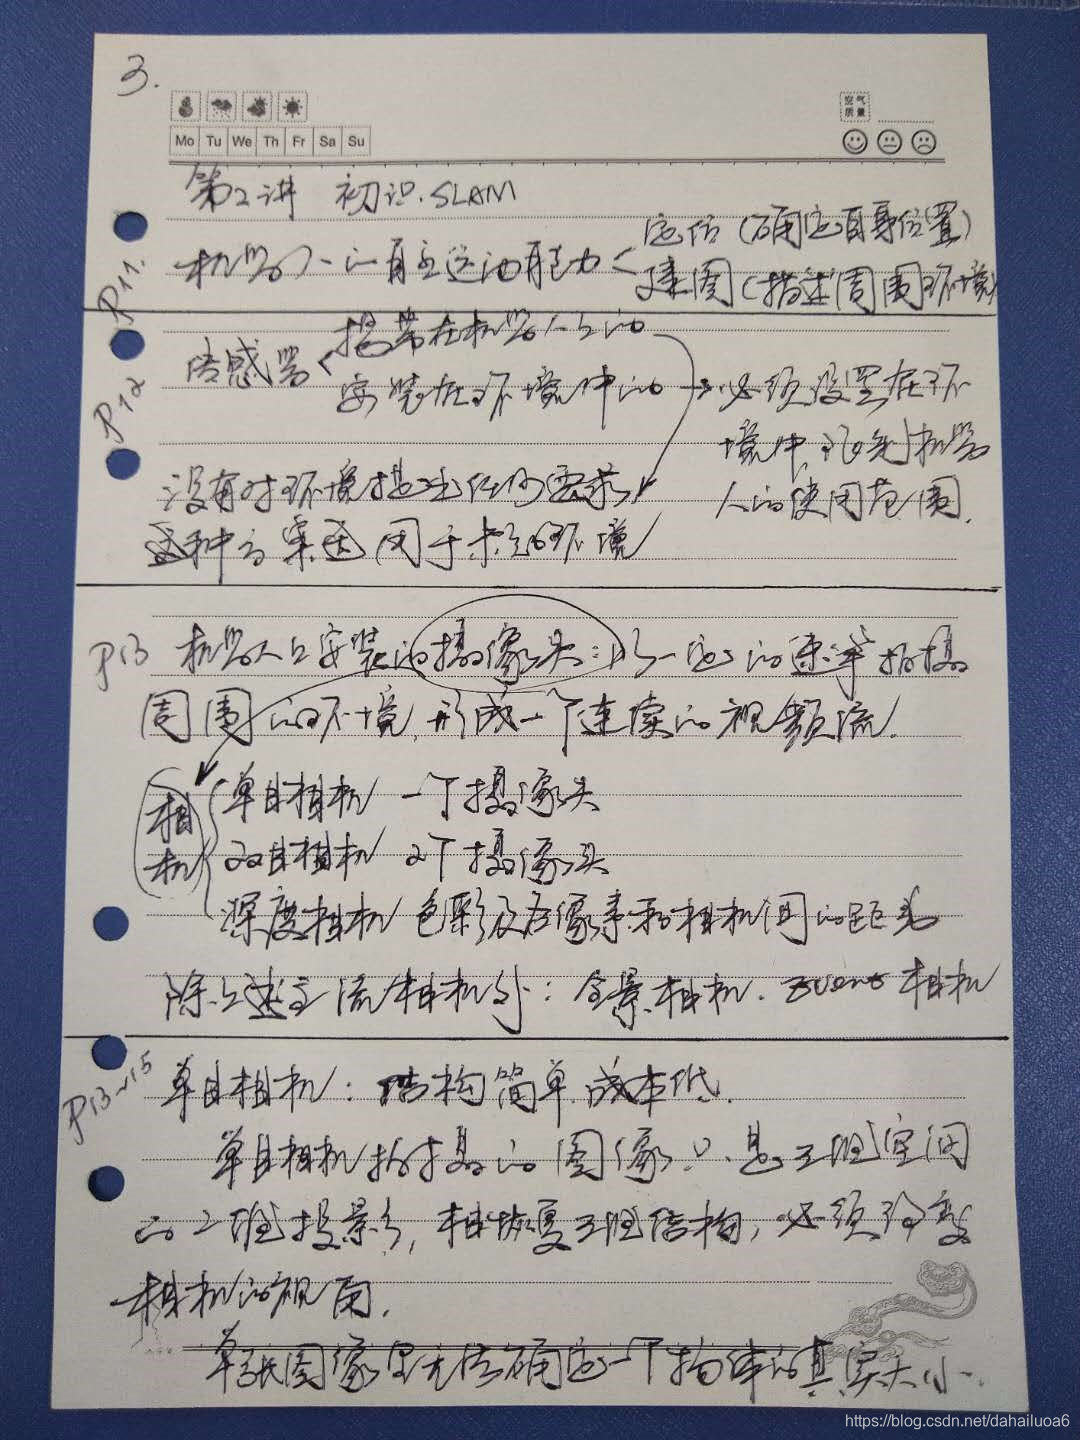 3.
空气
质量
Mo Tu We Th Fr Sa Su
第2讲 初识.SLAM
P11.
机器人的自主运动能力<
定位(确定自身位置)
建图(描述周围环境)
P12
传感器<
携带在机器人上的
安装在环境中的 → 必须设置在环
境中 限制机器
人的使用范围.
没有对环境提出任何要求
这种方案适用于未知环境
P13 机器人上安装的摄像头:以一定的速率拍摄
周围的环境,形成一个连续的视频流.
相机
单目相机 一个摄像头
双目相机 2个摄像头
深度相机 色彩及各像素和相机间的距离
除上述主流相机外:全景相机. Event 相机
P13~15
单目相机:结构简单.成本低.
单目相机拍摄的图像只是三维空间
的2维投影,想恢复三维结构,必须改变
相机的视角.
单张图像里无法确定一个物体的真实大小.
https://blog.csdn.net/dahailuoa6